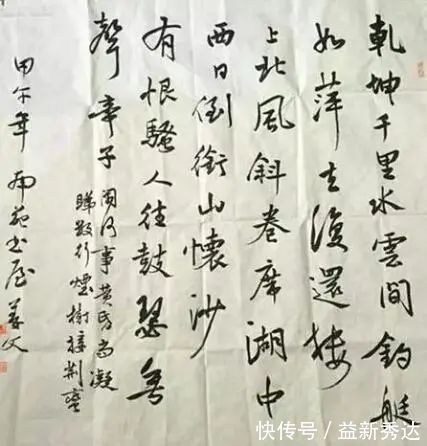 乾坤千里水雲間釣艇
如萍去復還楼
上北風斜卷席湖中
西日倒銜山懷沙
有恨騷人往鼓瑟無
聲帝子
閑何事黄昏尚凝
睇數行煙樹接荆蠻
甲午年
快传号/益新秀达